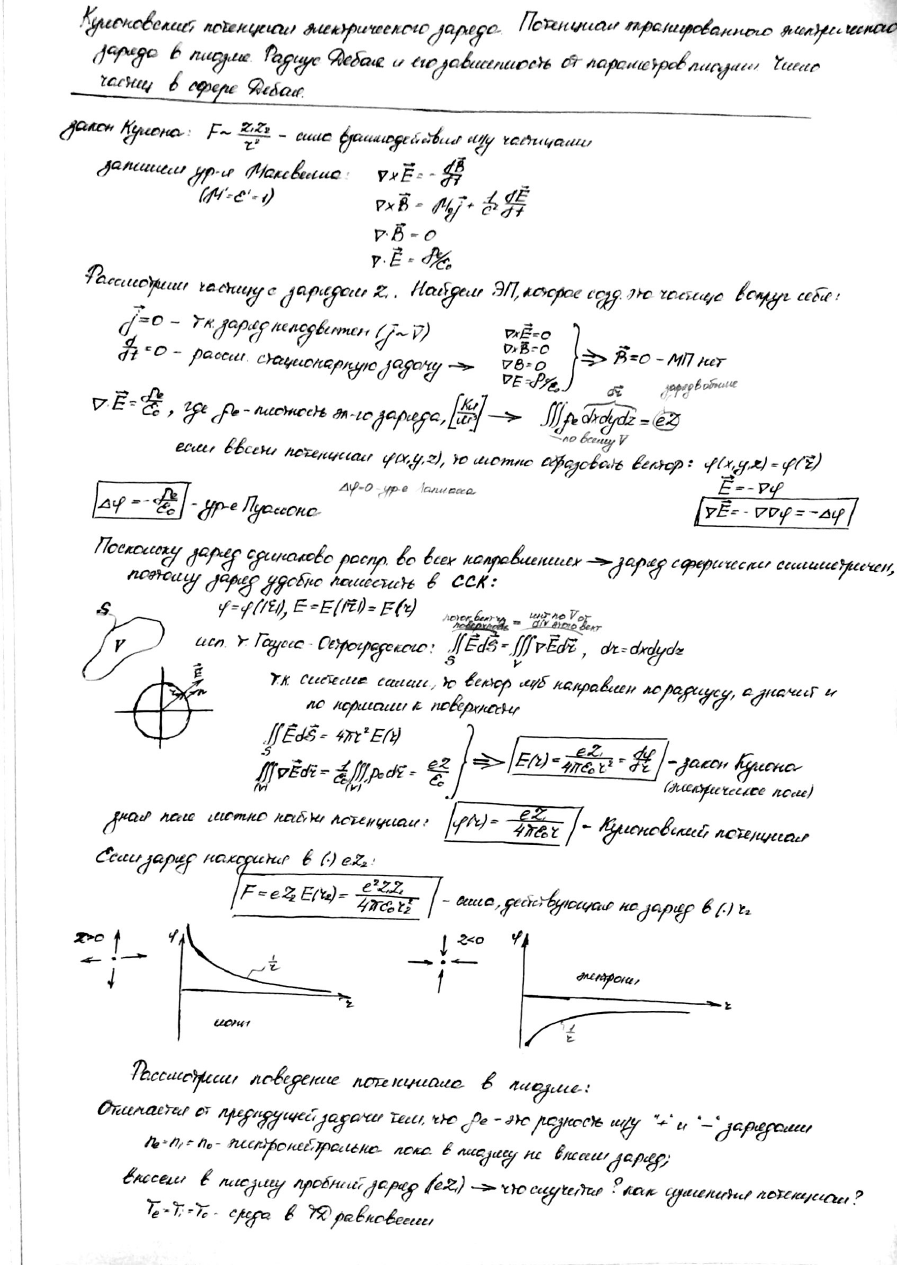 Кулоновский потенциал электрического заряда. Потенциал экранированного электрического
заряда в плазме. Радиус Дебая и его зависимость от параметров плазмы. Число
частиц в сфере Дебая.
закон Кулона: F ~ Z₁Z₂/r² – сила взаимодействия м/у частицами
запишем ур-я Максвелла: ∇×E⃗ = -dB⃗/dt
(μ'=ε'=1) ∇×B⃗ = μ₀j⃗ + 1/c² dE⃗/dt
∇·B⃗ = 0
∇·E⃗ = ρe/ε₀
Рассмотрим частицу с зарядом Z₁. Найдем ЭП, которое созд. эта частица вокруг себя:
j⃗=0 – т.к. заряд неподвижен (j⃗~v⃗) ∇×E⃗=0
∇×B⃗=0
d/dt=0 – рассм. стационарную задачу → ∇B=0 ⇒ B⃗=0 – МП нет
∇E=ρ/ε₀
∇·E⃗=ρe/ε₀, где ρe – плотность эл-го заряда, [Кл/м³] → ∭ρe dxdydz = eZ
dτ заряд в объеме
по всему V
если ввести потенциал φ(x,y,z), то можно образовать вектор: φ(x,y,z)=φ(r⃗)
Δφ=0 – ур-е Лапласа E⃗=-∇φ
Δφ=-ρe/ε₀ – ур-е Пуассона ∇E⃗=-∇∇φ=-Δφ
Поскольку заряд одинаково распр. во всех направлениях → заряд сферически симметричен,
поэтому заряд удобно поместить в ССК:
S φ=φ(|r⃗|), E=E(|r⃗|)=E(r)
поток вект ч/з поверхность = инт по V от div этого вект
V исп. т. Гаусса-Остроградского: ∬E⃗dS⃗=∭∇E⃗dτ, dτ=dxdydz
S V
E⃗ r n
т.к система симм, то вектор м/б направлен по радиусу, а значит и
по нормали к поверхности
∬E⃗dS⃗ = 4πr²E(r)
S
∭∇E⃗dτ=1/ε₀∭ρ₀dτ=eZ/ε₀ ⇒ E(r)=eZ₁/4πε₀r²=dφ/dr – закон Кулона
(V) (V) (электрическое поле)
зная поле можно найти потенциал: φ(r)=eZ₁/4πε₀r – Кулоновский потенциал
Если заряд находится в (·) eZ₂:
F=eZ₂E(r₂)=e²Z₁Z₂/4πε₀r₂² – сила, действующая на заряд в (·) r₂
Z>0 φ 1/r r Z<0 φ электроны r
ионы 1/r
Рассмотрим поведение потенциала в плазме:
Отличается от предыдущей задачи тем, что ρe – это разность м/у "+" и "-" зарядами
ne=ni=n₀ – электронейтральна пока в плазму не внесли заряд;
внесем в плазму пробный заряд (eZ₁) → что случится? как изменится потенциал?
Te=Ti=T₀ – среда в ТД равновесии